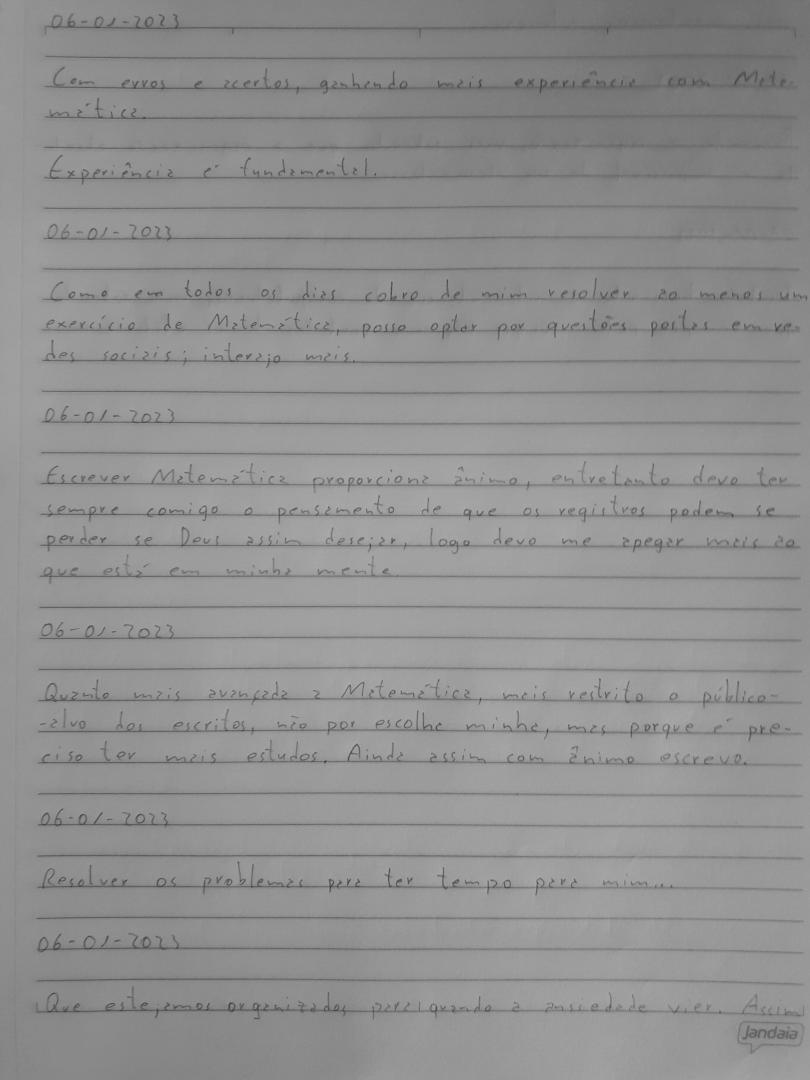 06-01-2023
Com erros e acertos, ganhando mais experiência com Mate-
mática.
Experiência é fundamental.
06-01-2023
Como em todos os dias cobro de mim resolver ao menos um
exercício de Matemática, posso optar por questões postas em re-
des sociais; interajo mais.
06-01-2023
Escrever Matemática proporciona ânimo, entretanto devo ter
sempre comigo o pensamento de que os registros podem se
perder se Deus assim desejar, logo devo me apegar mais ao
que está em minha mente.
06-01-2023
Quanto mais avançada a Matemática, mais restrito o público-
-alvo dos escritos, não por escolha minha, mas porque é pre-
ciso ter mais estudos. Ainda assim com ânimo escrevo.
06-01-2023
Resolver os problemas para ter tempo para mim...
06-01-2023
Que estejamos organizados para quando a ansiedade vier. Assim
Jandaia